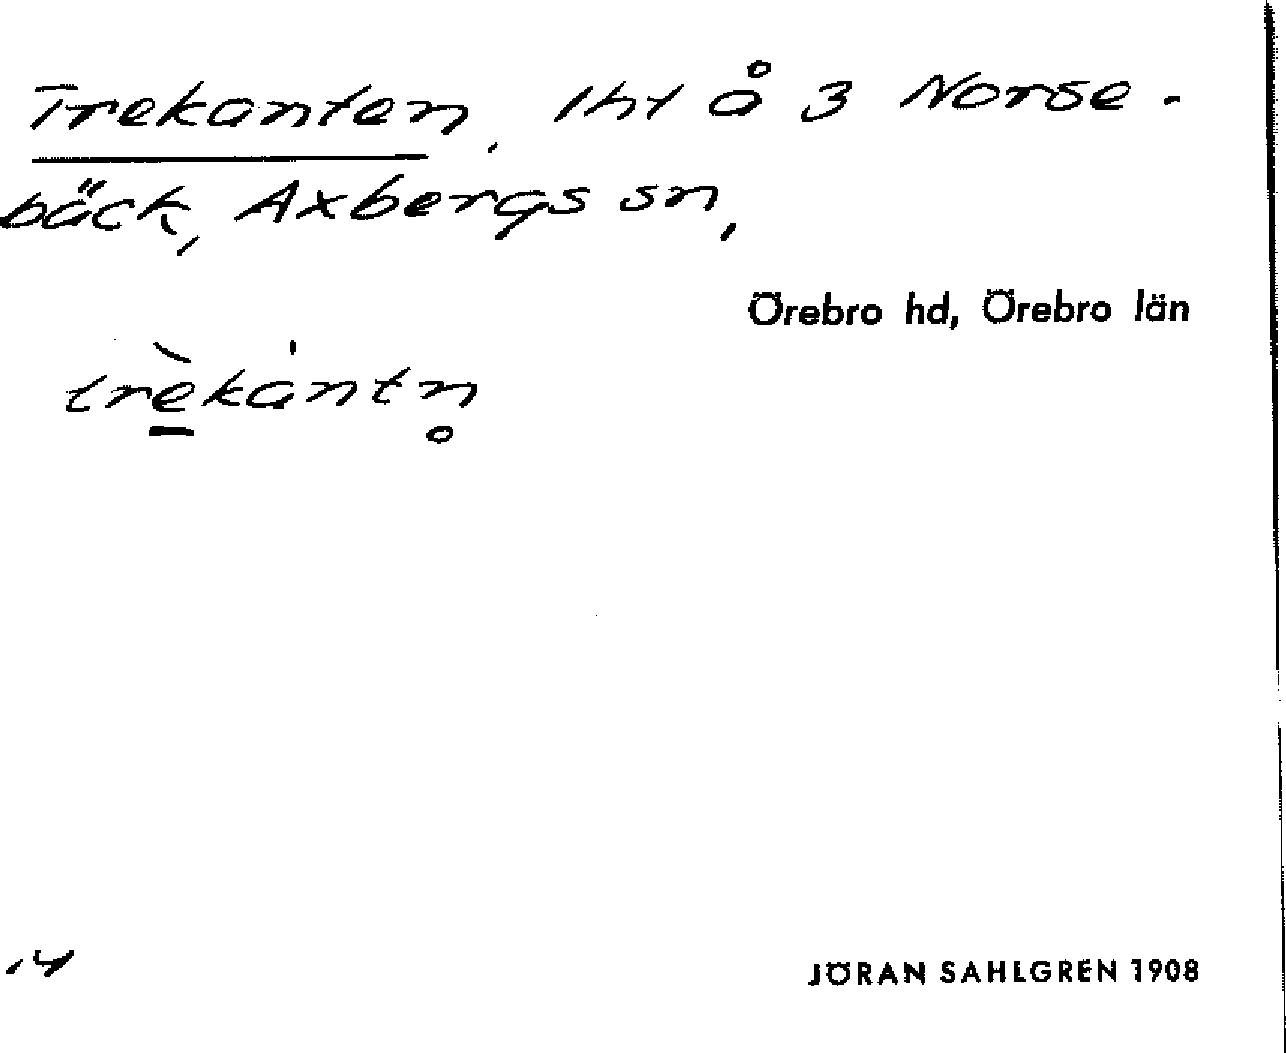 Trekanten, lht å 3 Norse-
bäck, Axbergs sn,
Örebro hd, Örebro län
trè̲ká̍ntn̥
14
JÖRAN SAHLGREN 1908